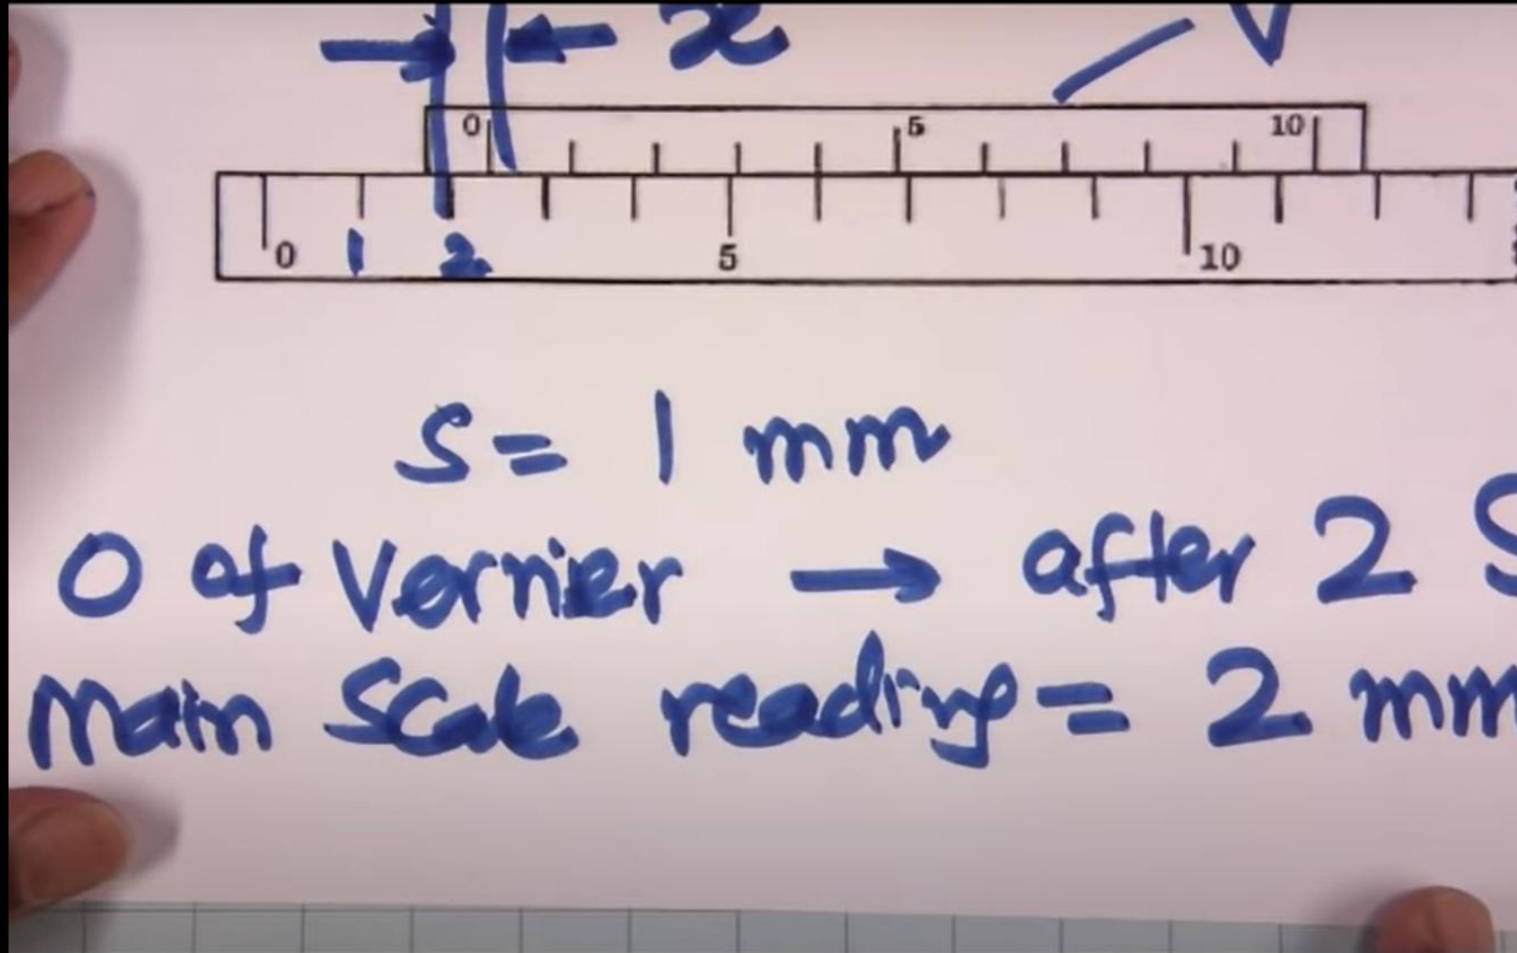 x V
0 5 10
0 1 2 5 10
S = 1 mm
0 of Vernier → after 2 S
Main Scale reading = 2 mm